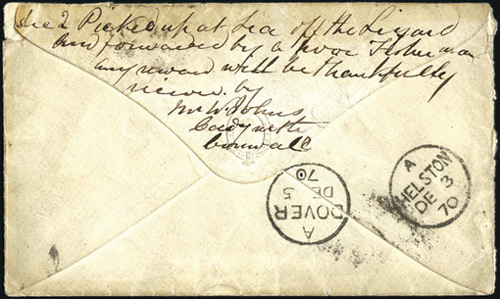 Dec 2 Picked up at Sea off the Lizard
and forwarded by a poor Fisherman
any reward will be thankfully
receive. by
Mr W Johns
Cadgwith
Cornwall
A
HELSTON
DE 3
70
A
DOVER
DE 5
70